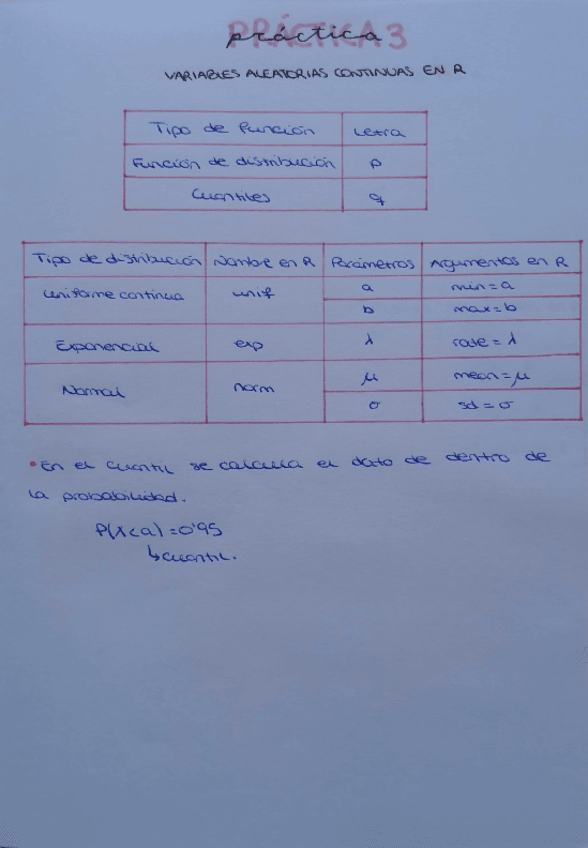 PRÁCTICA 3
práctica
VARIABLES ALEATORIAS CONTINUAS EN R
Tipo de Función Letra
Función de distribución p
Cuantiles q
Tipo de distribución Nombre en R Parámetros Argumentos en R
Uniforme continua unif a min=a
b max=b
Exponencial exp λ rate=λ
Normal norm μ mean=μ
σ sd=σ
•En el cuantil se calcula el dato de dentro de
la probabilidad.
P(X<a)=0'95
↳cuantil.